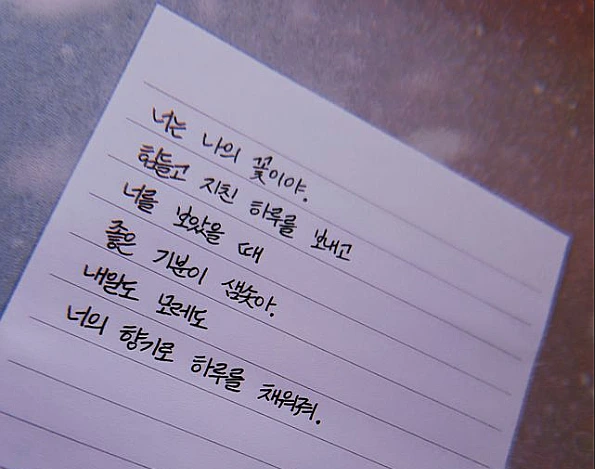 너는 나의 꽃이야.
힘들고 지친 하루를 보내고
너를 보았을 때
좋은 기분이 샘솟아.
내일도 모레도
너의 향기로 하루를 채워줘.